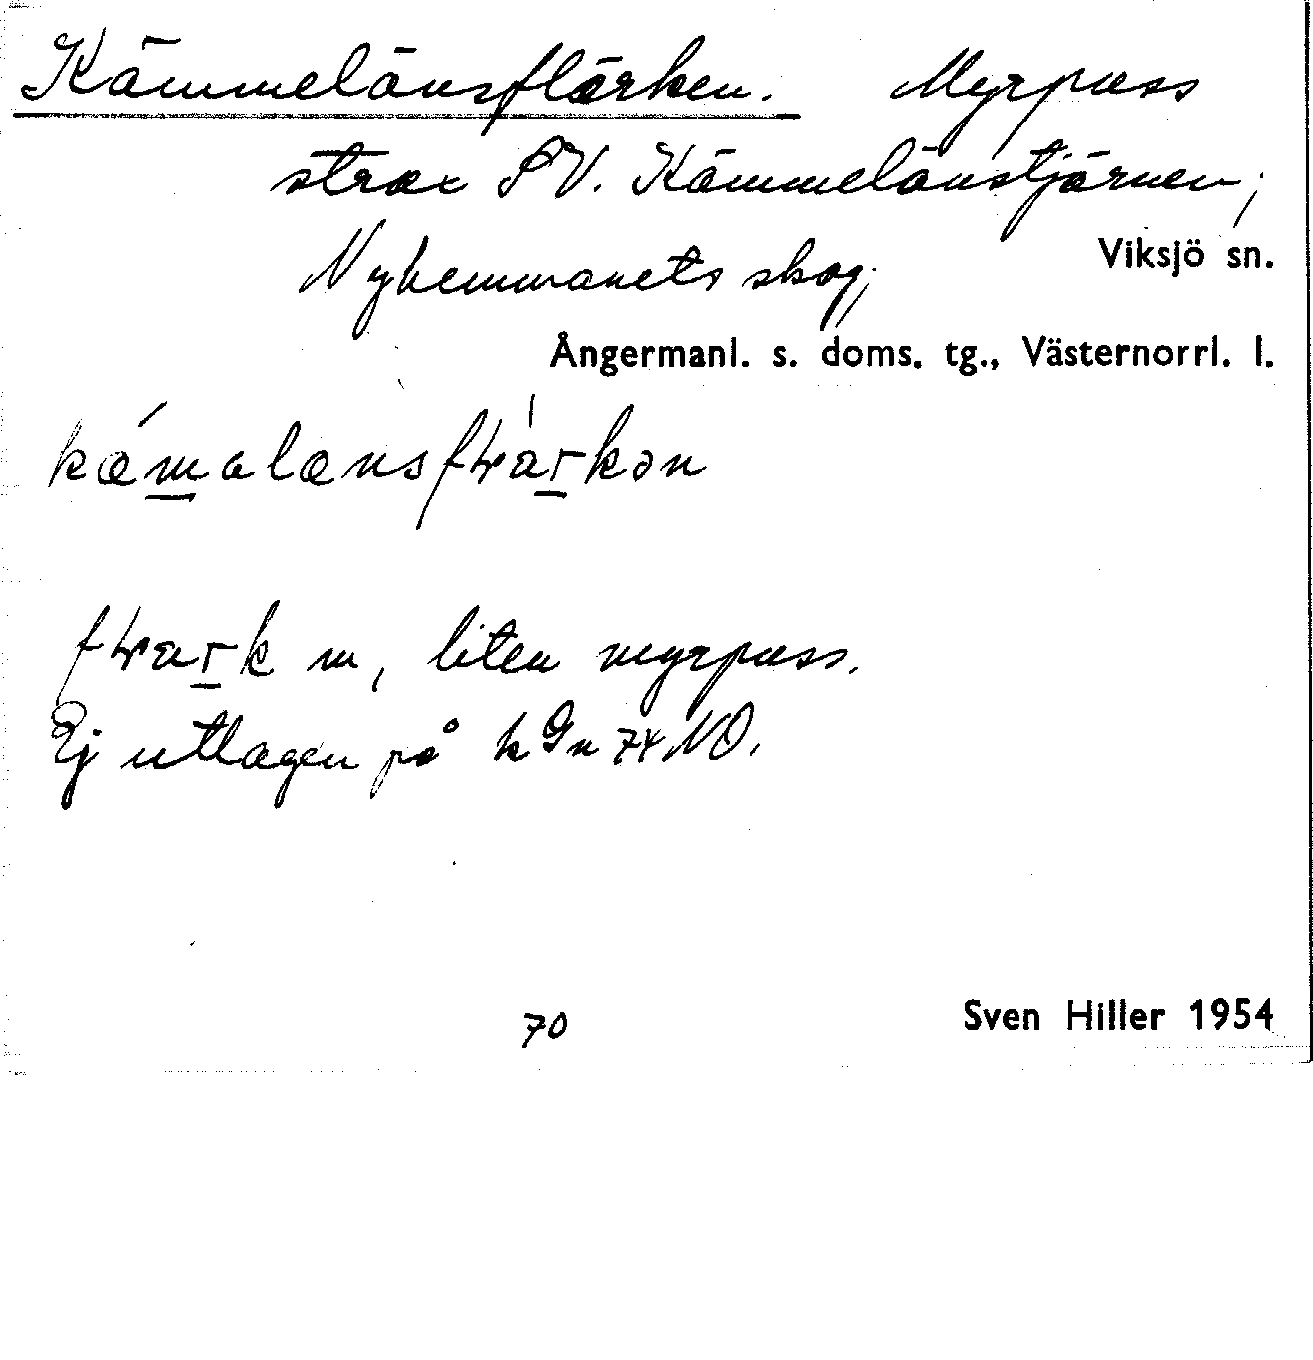 Kämmelänsflärken. Myrpuss
strax SV. Kämmelänstjärnen;
Nyhemmanets skog; Viksjö sn.
Ångermanl. s. doms. tg., Västernorrl. l.
liten myrpuss.
Ej utlagen på kGn 74 NO.
70 Sven Hiller 1954